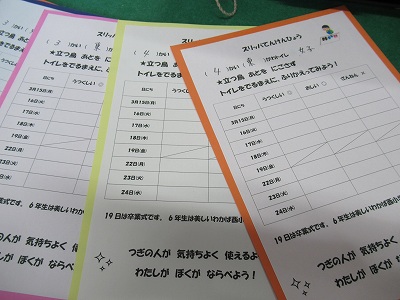 スリッパてんけんひょう
( 4 )かい( 東 )がわトイレ 女子
★立つ鳥 あとを にごさず
トイレをでるまえに、ふりかえってみよう!
日にち うつくしい◎ おしい○ ざんねん×
3月15日(月)
16日(火)
17日(水)
18日(木)
19日(金)
22日(月)
23日(火)
24日(水)
19日は卒業式です。6年生は美しいわかば西小
つぎの人が 気持ちよく
わたしが ぼくが ならべよう
スリッパてんけん
( 4 )かい( 東 )がわ
★立つ鳥 あとを にごさず
トイレをでるまえに、ふりか
日にち うつくしい◎
3月15日(月)
16日(火)
17日(水)
18日(木)
19日(金)
22日(月)
23日(火)
24日(水)
19日は卒業式です。6年生は美しいわかば西小
つぎの人が 気持ちよく 使えるよ
わたしが ぼくが ならべよう!
( 3 )かい( 東
★立つ鳥 あとを に
トイレをでるまえに、
日にち うつく
3月15日(月)
16日(火)
17日(水)
18日(木)
19日(金)
22日(月)
23日(火)
24日(水)
19日は卒業式です。6年生は
つぎの人が 気持
わたしが ぼく